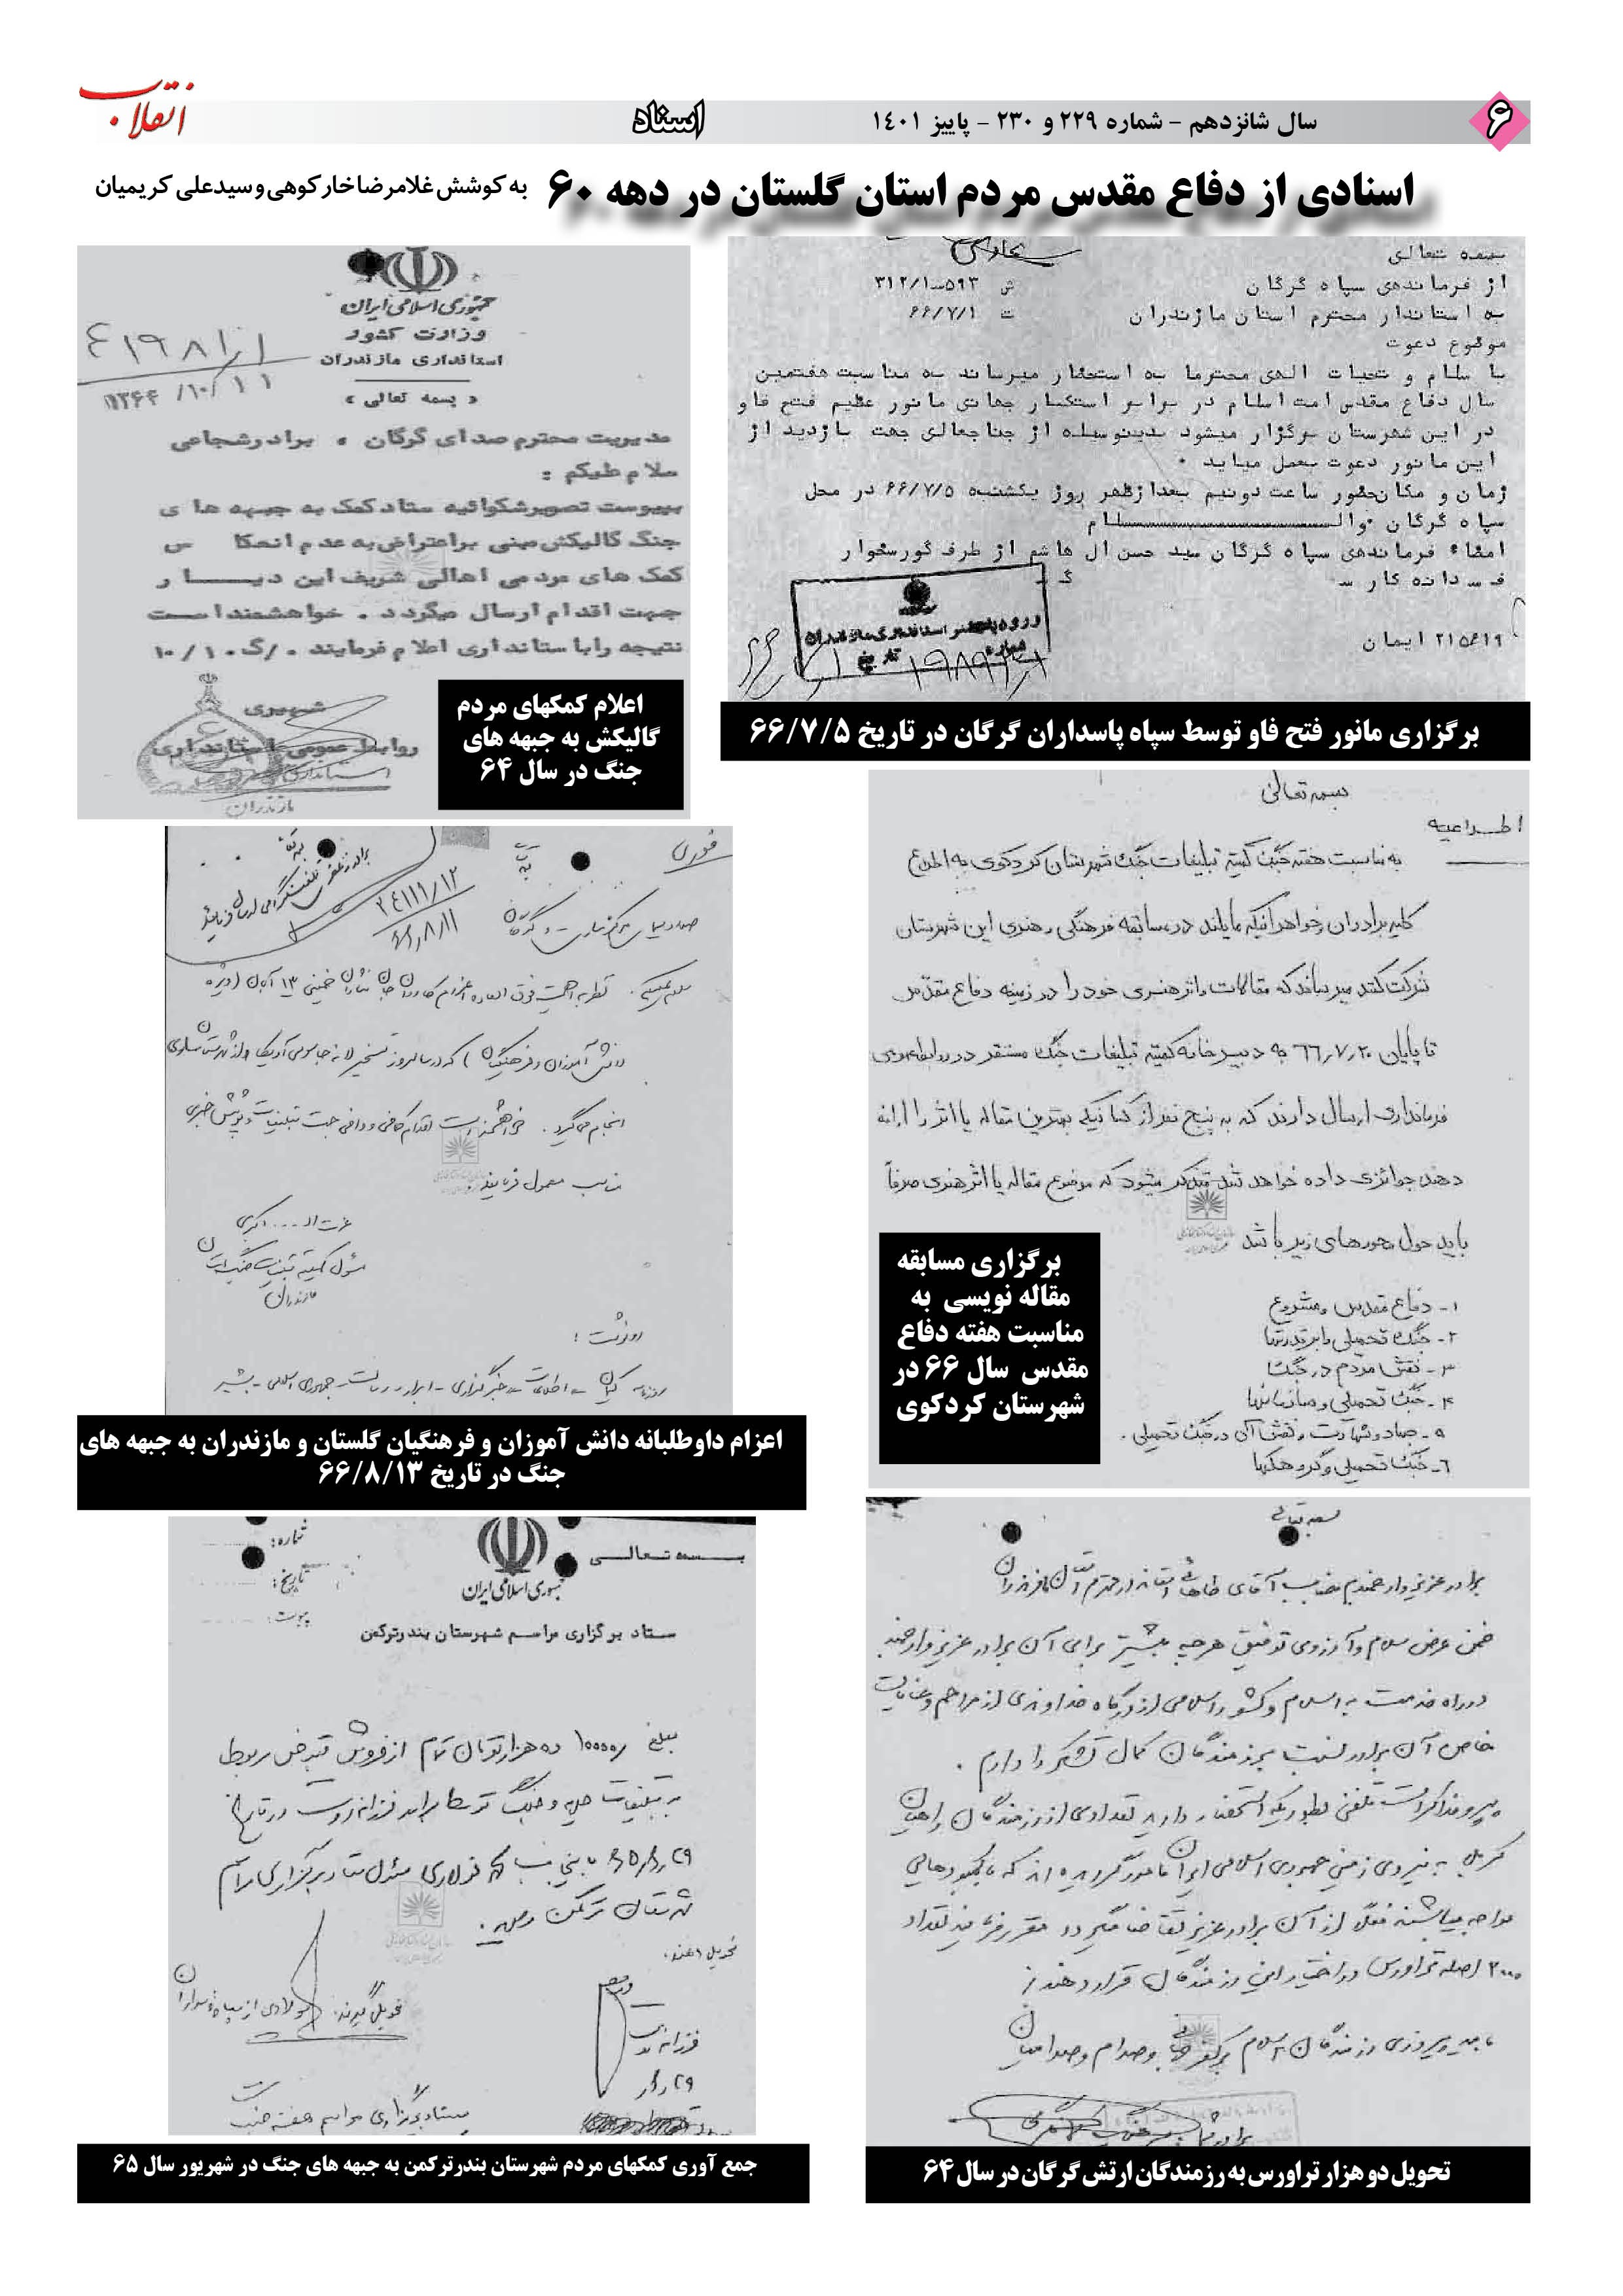 ۶
سال شانزدهم - شماره ۲۲۹ و ۲۳۰ - پاییز ۱۴۰۱
اسناد
انقلاب
اسنادی از دفاع مقدس مردم استان گلستان در دهه ۶۰
به کوشش غلامرضا خارکوهی و سیدعلی کریمیان
بسمه تعالی
از فرماندهی سپاه گرگان
ش ۳۱۲/۱-۵۹۳
به استاندار محترم استان مازندران
ت ۶۶/۷/۱
موضوع دعوت
با سلام و تحیات الهی محترما به استحضار میرساند به مناسبت هفتمین
سال دفاع مقدس امت اسلام در برابر استکبار جهانی مانور عظیم فتح فاو
در این شهرستان برگزار میشود بدینوسیله از جنابعالی جهت بازدید از
این مانور دعوت بعمل میاید .
زمان و مکان حضور ساعت دو نیم بعدازظهر روز یکشنبه ۶۶/۷/۵ در محل
سپاه گرگان والسلام
امضاء فرماندهی سپاه گرگان سید حسن ال هاشم از طرف
۲۱۵۶۱۹ ایمان
ورود به دفتر استانداری مازندران
شماره
تاریخ
برگزاری مانور فتح فاو توسط سپاه پاسداران گرگان در تاریخ ۶۶/۷/۵
جمهوری اسلامی ایران
وزارت کشور
استانداری مازندران
« بسمه تعالی »
مدیریت محترم صدای گرگان ، برادر شجاعی
سلام علیکم :
بپیوست تصویر شکوائیه ستاد کمک به جبهه های
جنگ گالیکش مبنی بر اعتراض به عدم انعکاس
کمک های مردمی اهالی شریف این دیار
جهت اقدام ارسال میگردد . خواهشمند است
نتیجه را با ستانداری اعلام فرمایند .
روابط عمومی استانداری
مازندران
اعلام کمکهای مردم
گالیکش به جبهه های
جنگ در سال ۶۴
بسمه تعالی
اطلاعیه
به مناسبت هفته جنگ کمیته تبلیغات جنگ شهرستان کردکوی به اطلاع
کلیه برادران و خواهرانیکه مایلند در مسابقه فرهنگی و هنری این شهرستان
شرکت کنند میرساند که مقالات و اثر هنری خود را در زمینه دفاع مقدس
تا پایان ۶۶/۷/۲۰ به دبیرخانه کمیته تبلیغات جنگ مستقر در روابط عمومی
فرمانداری ارسال دارند که به پنج نفر از کسانیکه بهترین مقاله یا اثر را ارائه
دهند جوائزی داده خواهد شد متذکر میشود که موضوع مقاله یا اثر هنری صرفاً
باید حول محورهای زیر باشد
۱- دفاع مقدس و مشروع
۲- جنگ تحمیلی و ابرقدرتها
۳- نقش مردم در جنگ
۴- جنگ تحمیلی و سازمانها
۵- جهاد و شهادت و نقش آن در جنگ تحمیلی .
۶- جنگ تحمیلی و گروهکها
برگزاری مسابقه
مقاله نویسی به
مناسبت هفته دفاع
مقدس سال ۶۶ در
شهرستان کردکوی
فوری
صدا و سیمای مرکز ساری و گرگان
سلام علیکم . نظر به اهمیت فوق العاده اعزام کاروان جان نثاران خمینی ۱۳ آبان (ویژه
دانش آموزان و فرهنگیان) که در سالروز تسخیر لانه جاسوسی آمریکا از شهرستان ساری
انجام می گیرد . خواهشمند است اقدام کافی و وافی جهت تبلیغات و پوشش خبری
مناسب معمول فرمایند .
مسئول کمیته تبلیغات جنگ استان
مازندران
رونوشت :
روزنامه کیهان - اطلاعات - خبرگزاری - ابرار - رسالت - جمهوری اسلامی -
اعزام داوطلبانه دانش آموزان و فرهنگیان گلستان و مازندران به جبهه های
جنگ در تاریخ ۶۶/۸/۱۳
بسمه تعالی
جمهوری اسلامی ایران
شماره:
تاریخ:
پیوست:
ستاد برگزاری مراسم شهرستان بندرترکمن
مبلغ ۱۰۰۰۰ ده هزار تومان تمام از فروش قبض مربوط
به تبلیغات جبهه و جنگ توسط برادر فرزانه دوست در تاریخ
مسئول ستاد برگزاری مراسم
شهرستان ترکمن رسید .
تحویل دهنده:
تحویل گیرنده:
ستاد برگزاری مراسم هفته جنگ
جمع آوری کمکهای مردم شهرستان بندرترکمن به جبهه های جنگ در شهریور سال ۶۵
بسمه تعالی
برادر عزیز و ارجمندم جناب آقای طاهائی استاندار محترم استان مازندران
ضمن عرض سلام و آرزوی توفیق هرچه بیشتر برای آن برادر عزیز و ارجمند
در راه خدمت به اسلام و کشور اسلامی از درگاه خداوندی از مراحم و عنایات
خاص آن برادر نسبت برزمندگان کمال تشکر را دارم .
پیرو مذاکرات تلفنی بطوریکه استحضار دارید تعدادی از رزمندگان راهیان
کربلا به نیروی زمینی جمهوری اسلامی ایران مامور گردیده اند که با کمبودهائی
مواجه میباشند فعلا از آن برادر عزیز تقاضا میگردد مقرر فرمایند تعداد
۲۰۰۰ اصله تراورس در اختیار این رزمندگان قرار دهند
بامید پیروزی رزمندگان اسلام بر کفر جهانی و صدام و صدامیان
تحویل دو هزار تراورس به رزمندگان ارتش گرگان در سال ۶۴